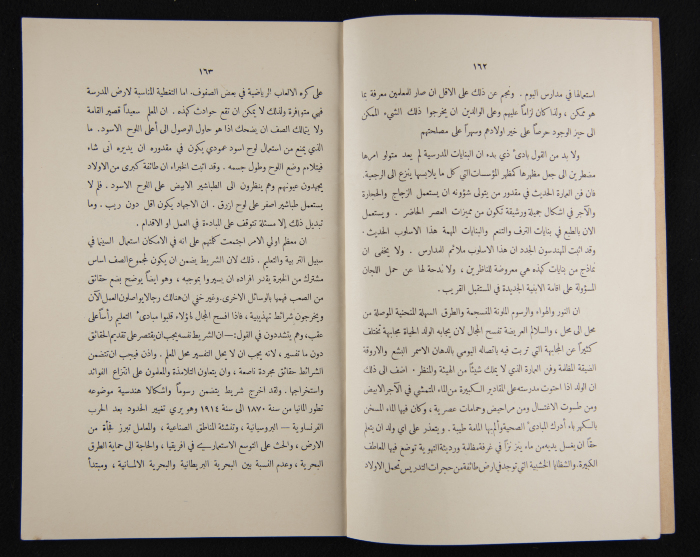 ١٦٢
استعمالها في مدارس اليوم . ونجم عن ذلك على الاقل ان صار للمعلمين معرفة بما
هو ممكن ، ولذا كان لزاماً عليهم وعلى الوالدين ان يخرجوا ذلك الشيء الممكن
الى حيز الوجود حرصاً على خير اولادهم وسهراً على مصلحتهم
ولا بد من القول بادئ ذي بدء ان البنايات المدرسية لم يعد متولو امرها
مضطرين الى جعل مظهرها كمظهر المؤسسات التي كل ما يلابسها ينزع الى الرجعية.
فان فن العمارة الحديث في مقدور من يتولى شؤونه ان يستعمل الزجاج والحجارة
والآجر في اشكال جميلة ورشيقة تكون من مميزات العصر الحاضر . ويستعمل
الان بالطبع في بنايات الترف والتنعم والبنايات المهمة هذا الاسلوب الحديث .
وقد اثبت المهندسون الجدد ان هذا الاسلوب ملائم للمدارس . ولا يخفى ان
نماذج من بنايات كهذه هي معروضة للناظرين ، ولا ندحة لها عن حمل اللجان
المسؤولة على اقامة الابنية الجديدة في المستقبل القريب .
ان النور والهواء والرسوم الملونة المنسجمة والطرق السهلة المنحنية الموصلة من
محل الى محل ، والسلالم العريضة تفسح المجال لان يجابه الولد الحياة مجابهة تختلف
كثيراً عن المجابهة التي تربت فيه باتصاله اليومي بالدهان الاسمر البشع والاروقة
الضيقة المظلمة وفن العمارة الذي لا يملك شيئاً من الهيئة والمنظر . اضف الى ذلك
ان الولد اذا احتوت مدرسته على المقادير الكبيرة من الماء المتمشي في الآجر الابيض
ومن طسوت الاغتسال ومن مراحيض وحمامات عصرية ، وكان فيها الماء المسخن
بالكهرباء أدرك المبادئ الصحية وألم بها المامة طيبة . ويتعذر على اي ولد ان يتعلم
حقاً ان يغسل يديه من ماء ينز نزاً في غرفة مظلمة ورديئة التهوية توضع فيها المعاطف
الكبيرة. والشظايا الخشبية التي توجد في ارض طائفة من حجرات التدريس تحمل الاولاد
١٦٣
على كره الالعاب الرياضية في بعض الصفوف. اما التغطية المناسبة لارض المدرسة
فهي متوفرة ولذلك لا يمكن ان تقع حوادث كهذه . ان المعلم سعيداً قصير القامة
ولا يتمالك الصف ان يضحك اذا هو حاول الوصول الى أعلى اللوح الاسود. ما
الذي يمنع من استعمال لوح اسود عمودي يكون في مقدوره ان يديره انى شاء
فيتلاءم وضع اللوح وطول جسمه . وقد اثبت الخبراء ان طائفة كبرى من الاولاد
يجهدون عيونهم وهم ينظرون الى الطباشير الابيض على اللوح الاسود . فلم لا
يستعمل طباشير اصفر على لوح ازرق . ان الاجهاد يكون اقل دون ريب . وما
تبديل ذلك إلا مسئلة تتوقف على المبادءة في العمل او الاقدام .
ان معظم اولي الامر اجتمعت كلمتهم على انه في الامكان استعمال السينما في
سبيل التربية والتعليم . ذلك لان الشريط يضمن ان يكون لمجموع الصف اساس
مشترك من الخبرة يقدر افراده ان يسيروا بموجبه ، وهو ايضاً يوضح بضع حقائق
من الصعب فهمها بالوسائل الاخرى. وغير خفي ان هنالك رجالاً يواصلون العمل الآن
ويخرجون شرائط تهذيبية ، فاذا افسح المجال لهؤلاء قلبوا مبادئ التعليم رأساً على
عقب، وهم يتشددون في القول:— ان الشريط نفسه يجب ان يقتصر على تقديم الحقائق
دون ما تفسير ، لانه يجب ان لا يحل التفسير محل المعلم . واذن فيجب ان تتضمن
الشرائط حقائق مجردة ناصعة ، وان يتعاون التلامذة والمعلمون على انتزاع الفوائد
واستخراجها . ولقد اخرج شريط يتضمن رسوماً واشكالا هندسية موضوعه
تطور المانيا من سنة ١٨٧٠ الى سنة ١٩١٤ وهو يري تغيير الحدود بعد الحرب
الفرنساوية — البروسيانية ، وتفشئة المناطق الصناعية ، والمعامل تبرز فجأة من
الارض ، والحث على التوسع الاستعماري في افريقيا ، والحاجة الى حماية الطرق
البحرية ، وعدم النسبة بين البحرية البريطانية والبحرية الالمانية ، ومبتدأ